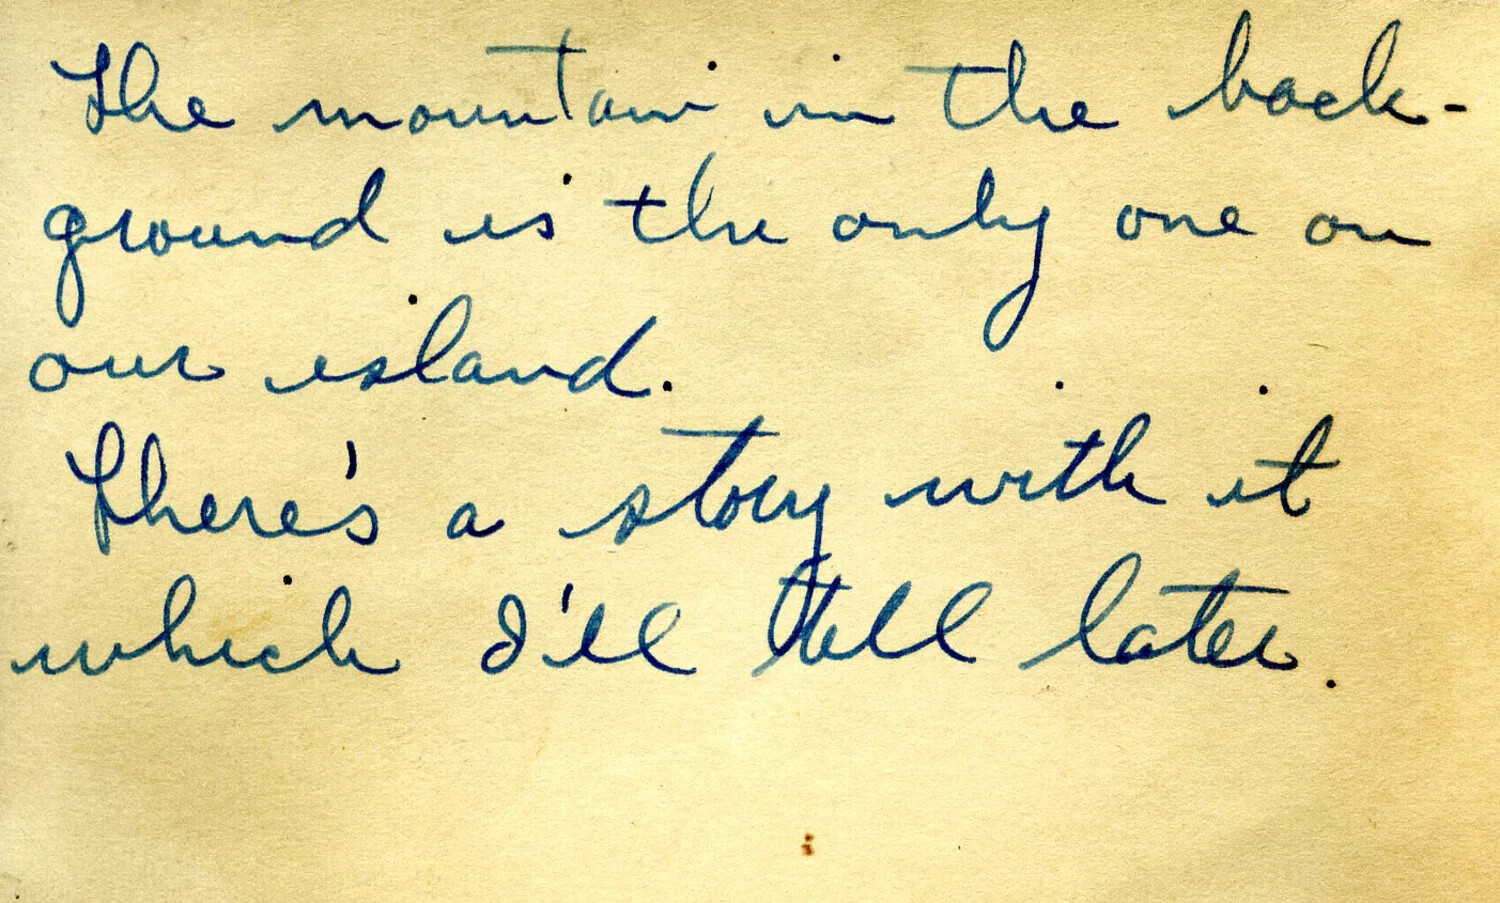 The mountain in the back-
ground is the only one on
our island.
There's a story with it
which I'll tell later.